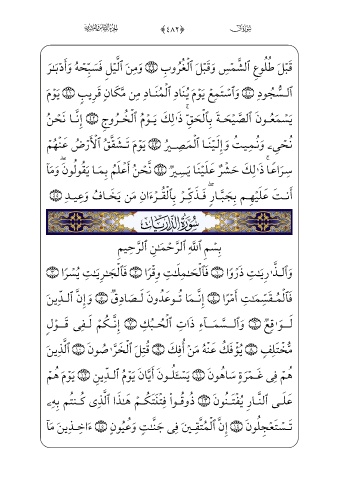 سُورَةُ قٓ ﴿٤٨٢﴾ الجزء السادس والعشرون
قَبْلَ طُلُوعِ ٱلشَّمْسِ وَقَبْلَ ٱلْغُرُوبِ ۝٣٩ وَمِنَ ٱلَّيْلِ فَسَبِّحْهُ وَأَدْبَٰرَ
ٱلسُّجُودِ ۝٤٠ وَٱسْتَمِعْ يَوْمَ يُنَادِ ٱلْمُنَادِ مِن مَّكَانٍ قَرِيبٍ ۝٤١ يَوْمَ
يَسْمَعُونَ ٱلصَّيْحَةَ بِٱلْحَقِّ ۚ ذَٰلِكَ يَوْمُ ٱلْخُرُوجِ ۝٤٢ إِنَّا نَحْنُ
نُحْىِۦ وَنُمِيتُ وَإِلَيْنَا ٱلْمَصِيرُ ۝٤٣ يَوْمَ تَشَقَّقُ ٱلْأَرْضُ عَنْهُمْ
سِرَاعًا ۚ ذَٰلِكَ حَشْرٌ عَلَيْنَا يَسِيرٌ ۝٤٤ نَّحْنُ أَعْلَمُ بِمَا يَقُولُونَ ۖ وَمَآ
أَنتَ عَلَيْهِم بِجَبَّارٍ ۖ فَذَكِّرْ بِٱلْقُرْءَانِ مَن يَخَافُ وَعِيدِ ۝٤٥
سُورَةُ الذَّارِيَاتِ
بِسْمِ ٱللَّهِ ٱلرَّحْمَٰنِ ٱلرَّحِيمِ
وَٱلذَّٰرِيَٰتِ ذَرْوًا ۝١ فَٱلْحَٰمِلَٰتِ وِقْرًا ۝٢ فَٱلْجَٰرِيَٰتِ يُسْرًا ۝٣
فَٱلْمُقَسِّمَٰتِ أَمْرًا ۝٤ إِنَّمَا تُوعَدُونَ لَصَادِقٌ ۝٥ وَإِنَّ ٱلدِّينَ
لَوَٰقِعٌ ۝٦ وَٱلسَّمَآءِ ذَاتِ ٱلْحُبُكِ ۝٧ إِنَّكُمْ لَفِى قَوْلٍ
مُّخْتَلِفٍ ۝٨ يُؤْفَكُ عَنْهُ مَنْ أُفِكَ ۝٩ قُتِلَ ٱلْخَرَّٰصُونَ ۝١٠ ٱلَّذِينَ
هُمْ فِى غَمْرَةٍ سَاهُونَ ۝١١ يَسْـَٔلُونَ أَيَّانَ يَوْمُ ٱلدِّينِ ۝١٢ يَوْمَ هُمْ
عَلَى ٱلنَّارِ يُفْتَنُونَ ۝١٣ ذُوقُوا۟ فِتْنَتَكُمْ هَٰذَا ٱلَّذِى كُنتُم بِهِۦ
تَسْتَعْجِلُونَ ۝١٤ إِنَّ ٱلْمُتَّقِينَ فِى جَنَّٰتٍ وَعُيُونٍ ۝١٥ ءَاخِذِينَ مَآ